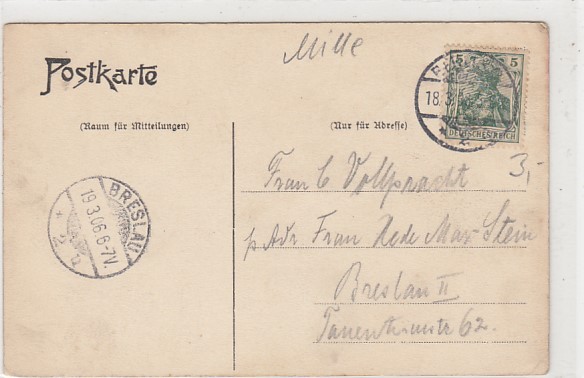 Mille
Postkarte
5
18.3.
DEUTSCHES REICH
(Raum für Mitteilungen)
(Nur für Adresse)
3,-
Frau C Vollpracht
BRESLAU
19.3.06.6-7V.
* 2 u
p Adr Frau Max Stein
Breslau II
Tauentzinstr 62.